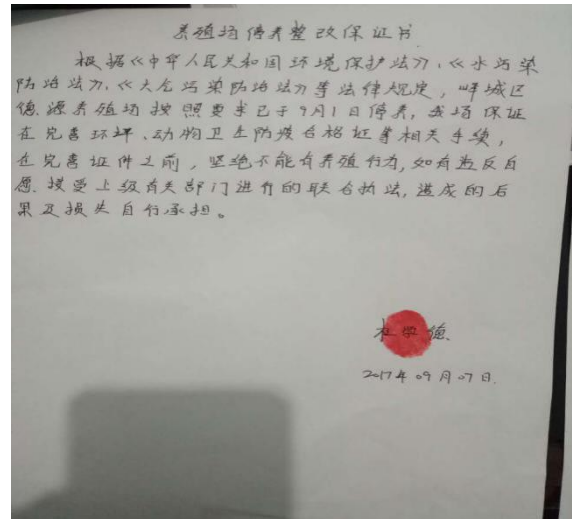 养殖场停养整改保证书
根据《中华人民共和国环境保护法》、《水污染
防治法》、《大气污染防治法》等法律规定，峄城区
德源养殖场按照要求已于9月1日停养，我场保证
在完善环评、动物卫生防疫合格证等相关手续，
在完善证件之前，坚绝不能有养殖行为，如有违反自
愿接受上级有关部门进行的联合执法，造成的后
果及损失自行承担。
杜学德
2017年09月07日.